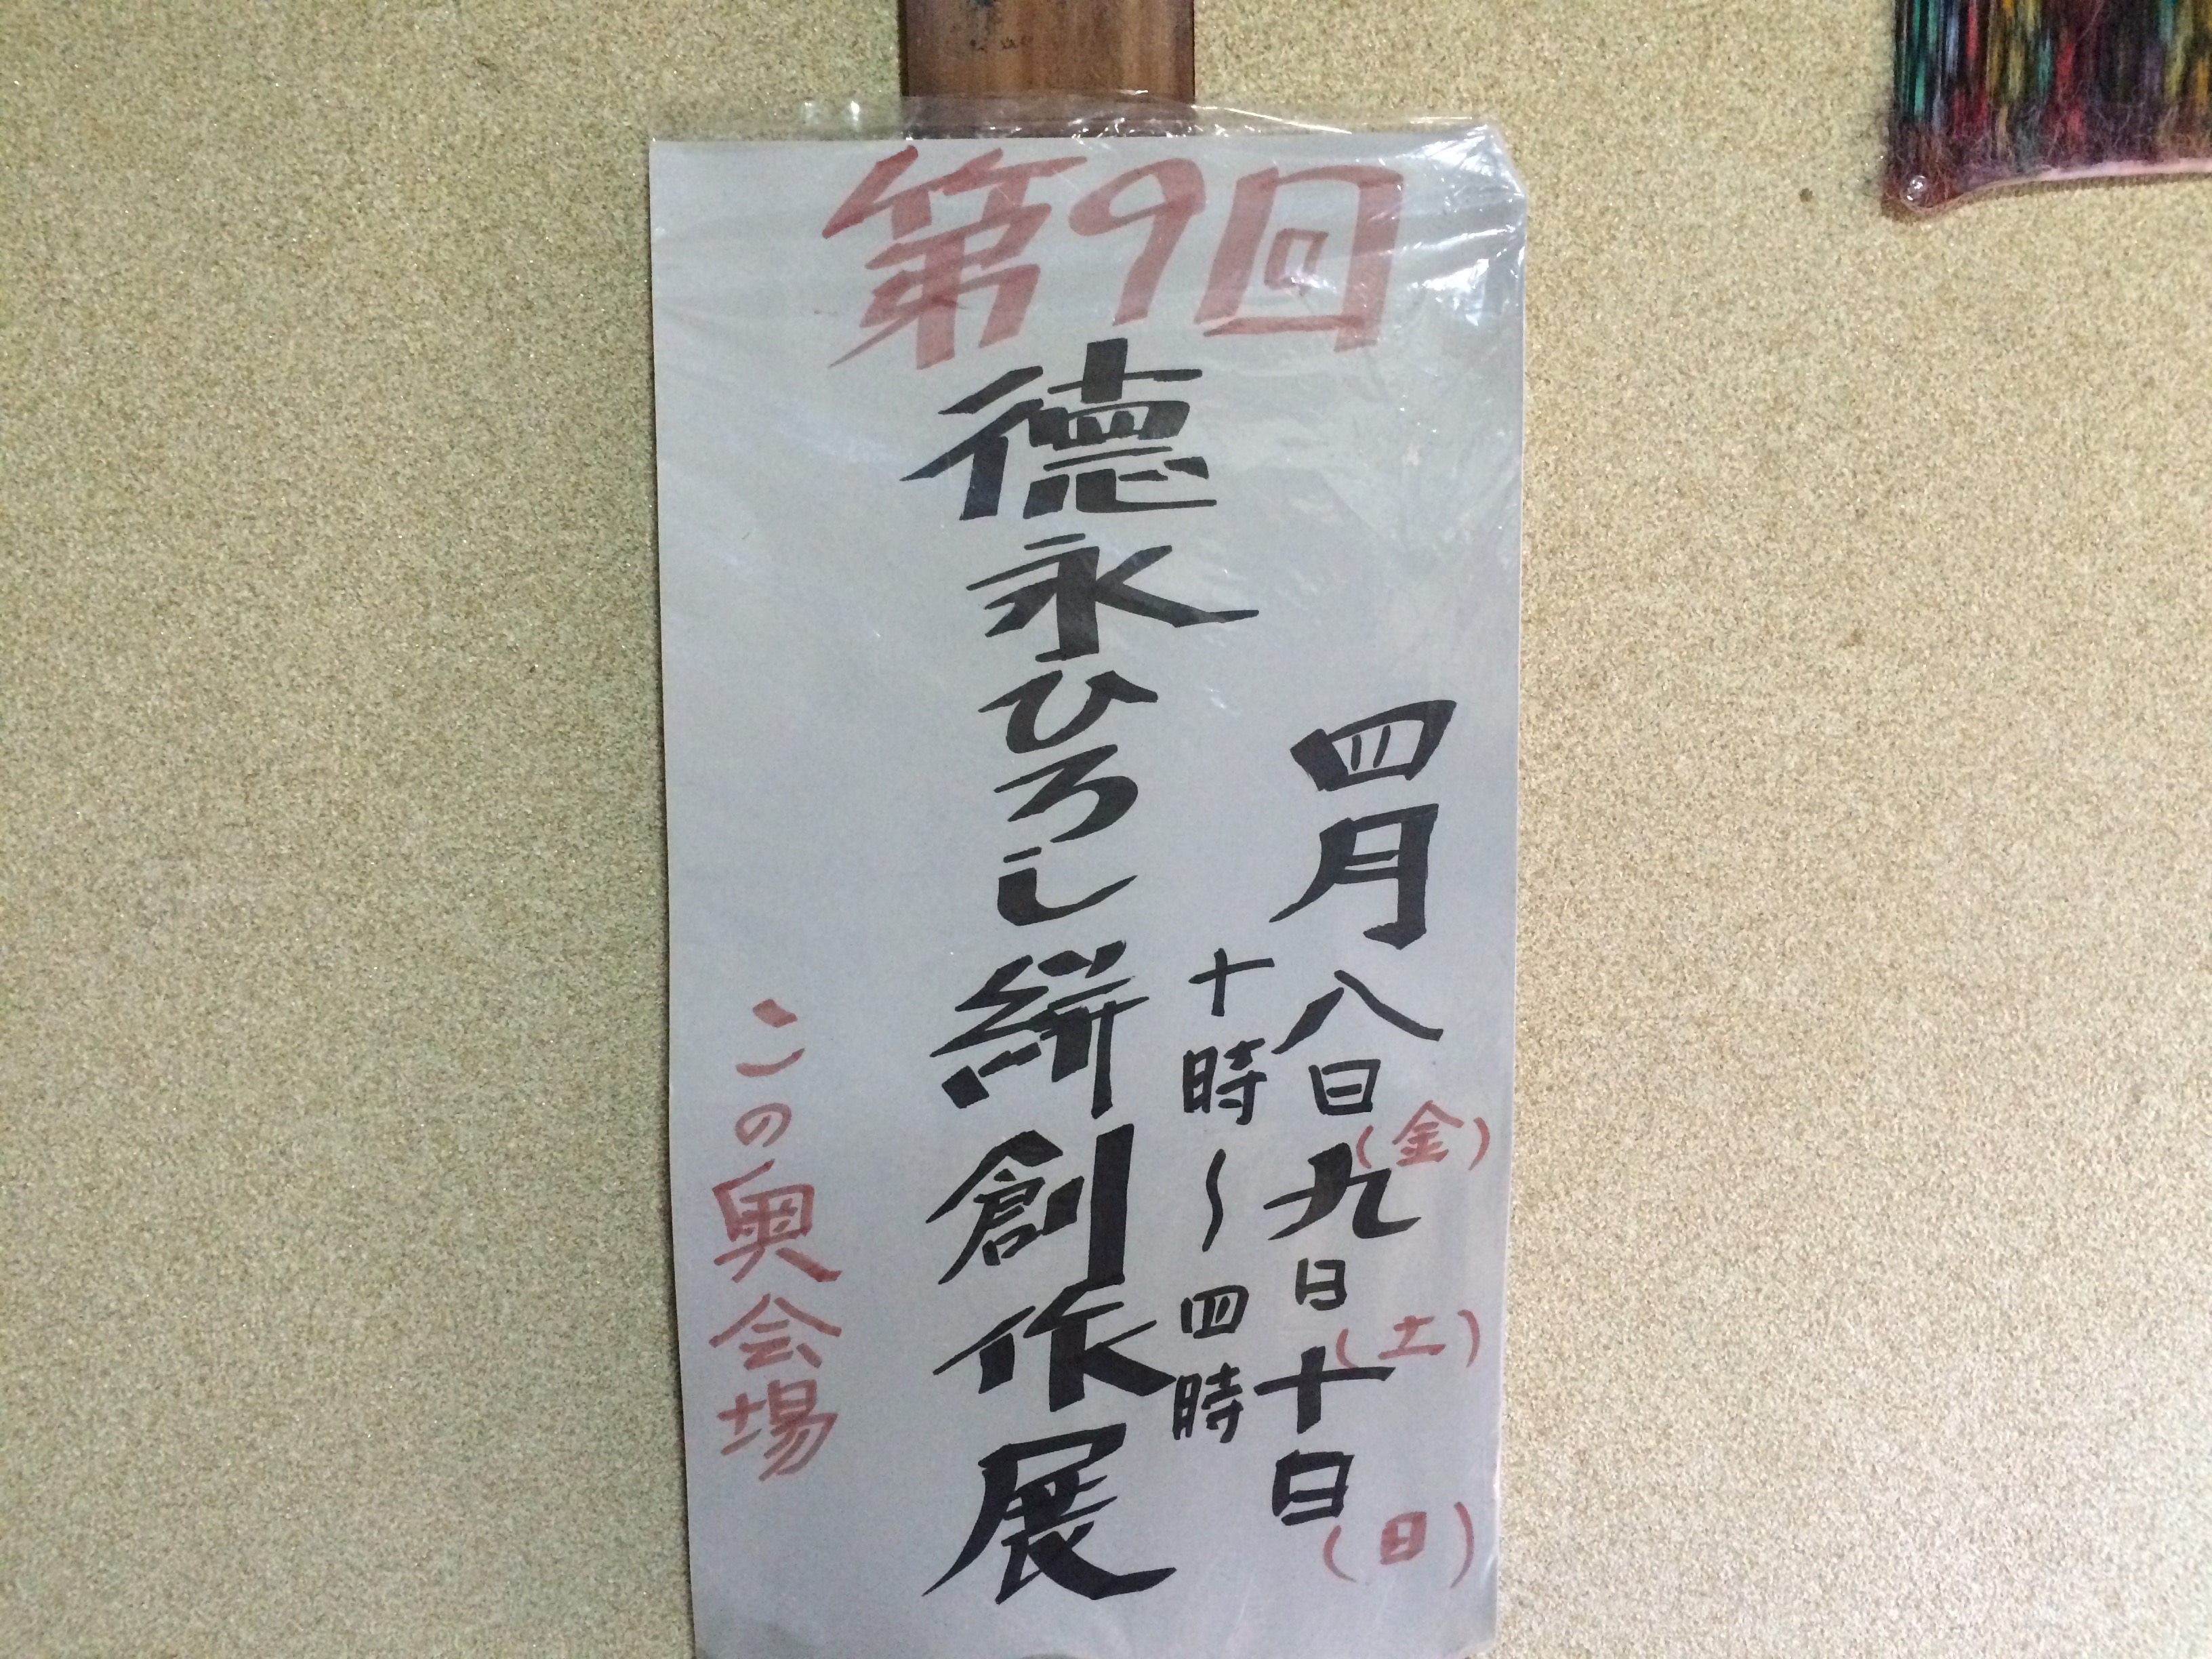 第9回
四月八日(金)九日(土)十日(日)
十時～四時
德永ひろし絣創作展
この奥会場